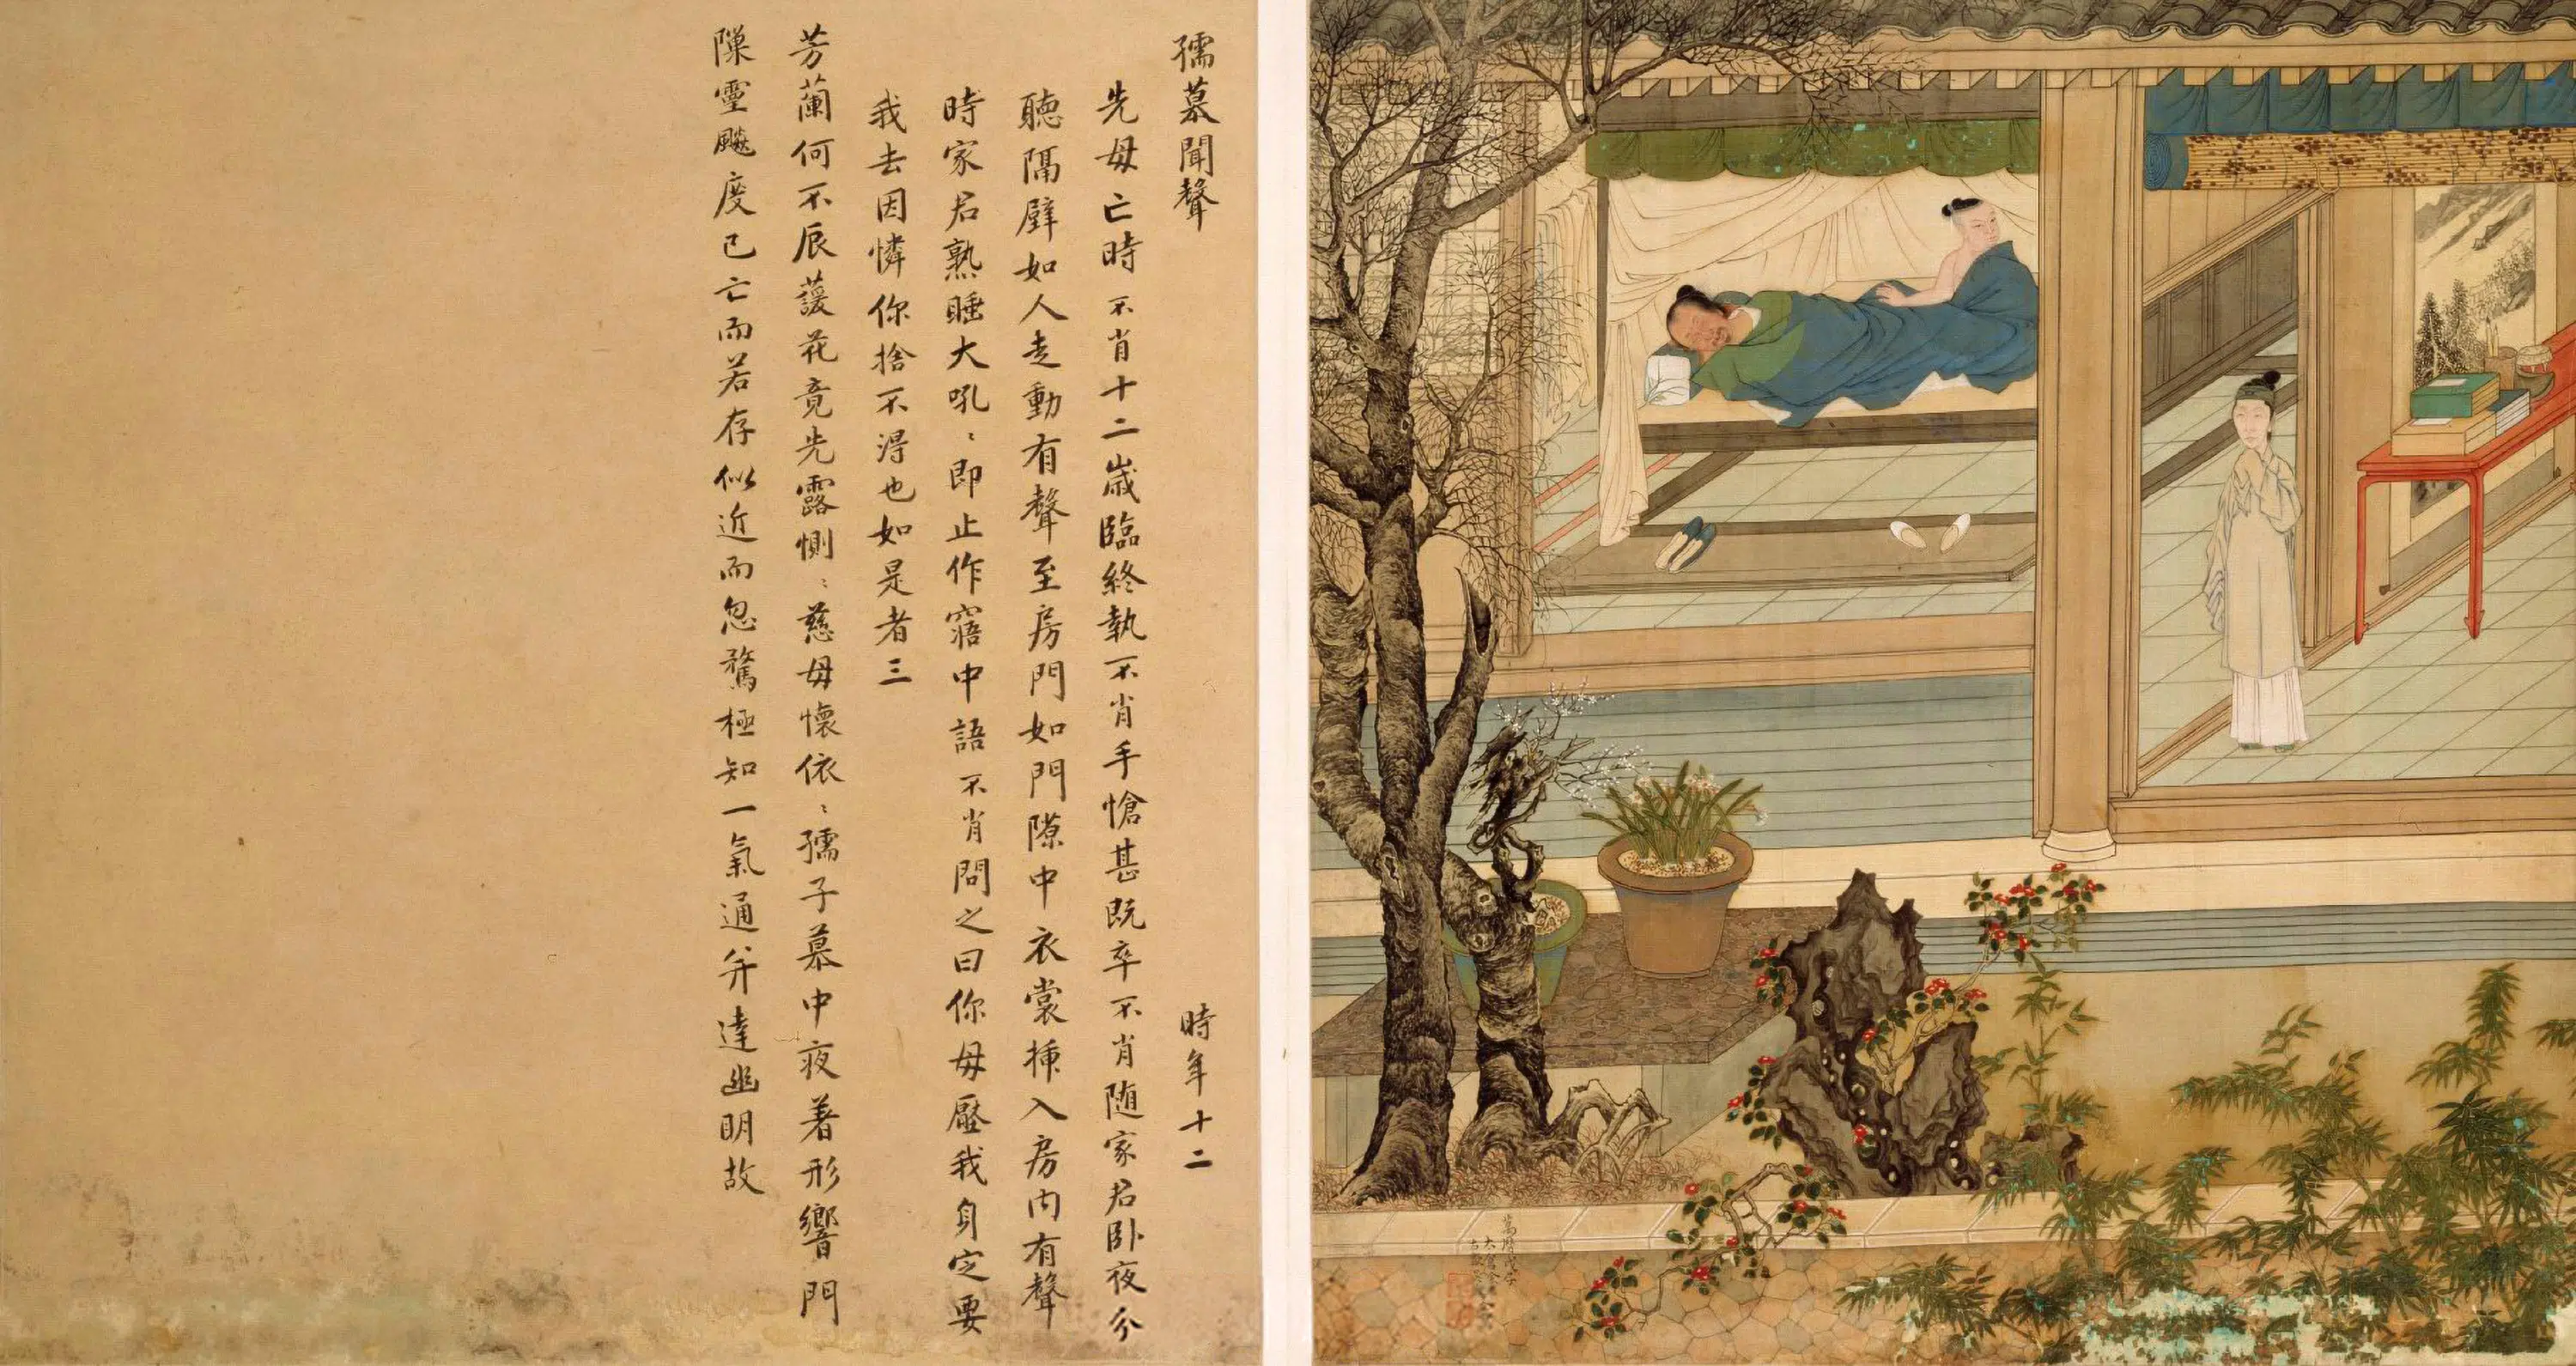 孺慕聞聲 時年十二
先母亡時不肖十二歲臨終執不肖手愴甚既卒不肖随家君卧夜分
聽隔壁如人走動有聲至房門如門隙中衣裳揷入房內有聲
時家君熟睡大吼〻即止作寤中語不肖問之曰你母壓我身定要
我去因憐你捨不淂也如是者三
芳蘭何不辰蘐花竟先露惻〻慈母懷依〻孺子慕中夜著形響門
隙靈颷度已亡而若存似近而忽驚極知一氣通幷達幽明故
萬曆戊子